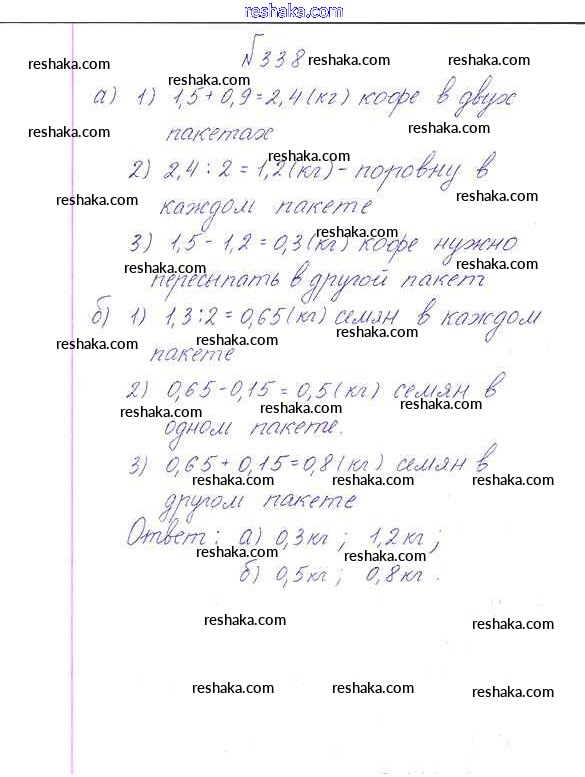 reshaka.com
№338 reshaka.com reshaka.com
reshaka.com
reshaka.com
а) 1) 1,5+0,9=2,4(кг) кофе в двух
reshaka.com reshaka.com
пакетах
reshaka.com
2) 2,4:2=1,2(кг)-поровну в
reshaka.com reshaka.com
каждом пакете
reshaka.com
3) 1,5-1,2=0,3(кг) кофе нужно
reshaka.com reshaka.com
пересыпать в другой пакет
б) 1) 1,3:2=0,65(кг) семян в каждом
reshaka.com reshaka.com reshaka.com
пакете
2) 0,65-0,15=0,5(кг) семян в
reshaka.com reshaka.com reshaka.com
одном пакете.
3) 0,65+0,15=0,8(кг) семян в
reshaka.com reshaka.com reshaka.com
другом пакете
Ответ: а) 0,3кг; 1,2кг;
reshaka.com reshaka.com
б) 0,5кг; 0,8кг.
reshaka.com reshaka.com
reshaka.com reshaka.com reshaka.com